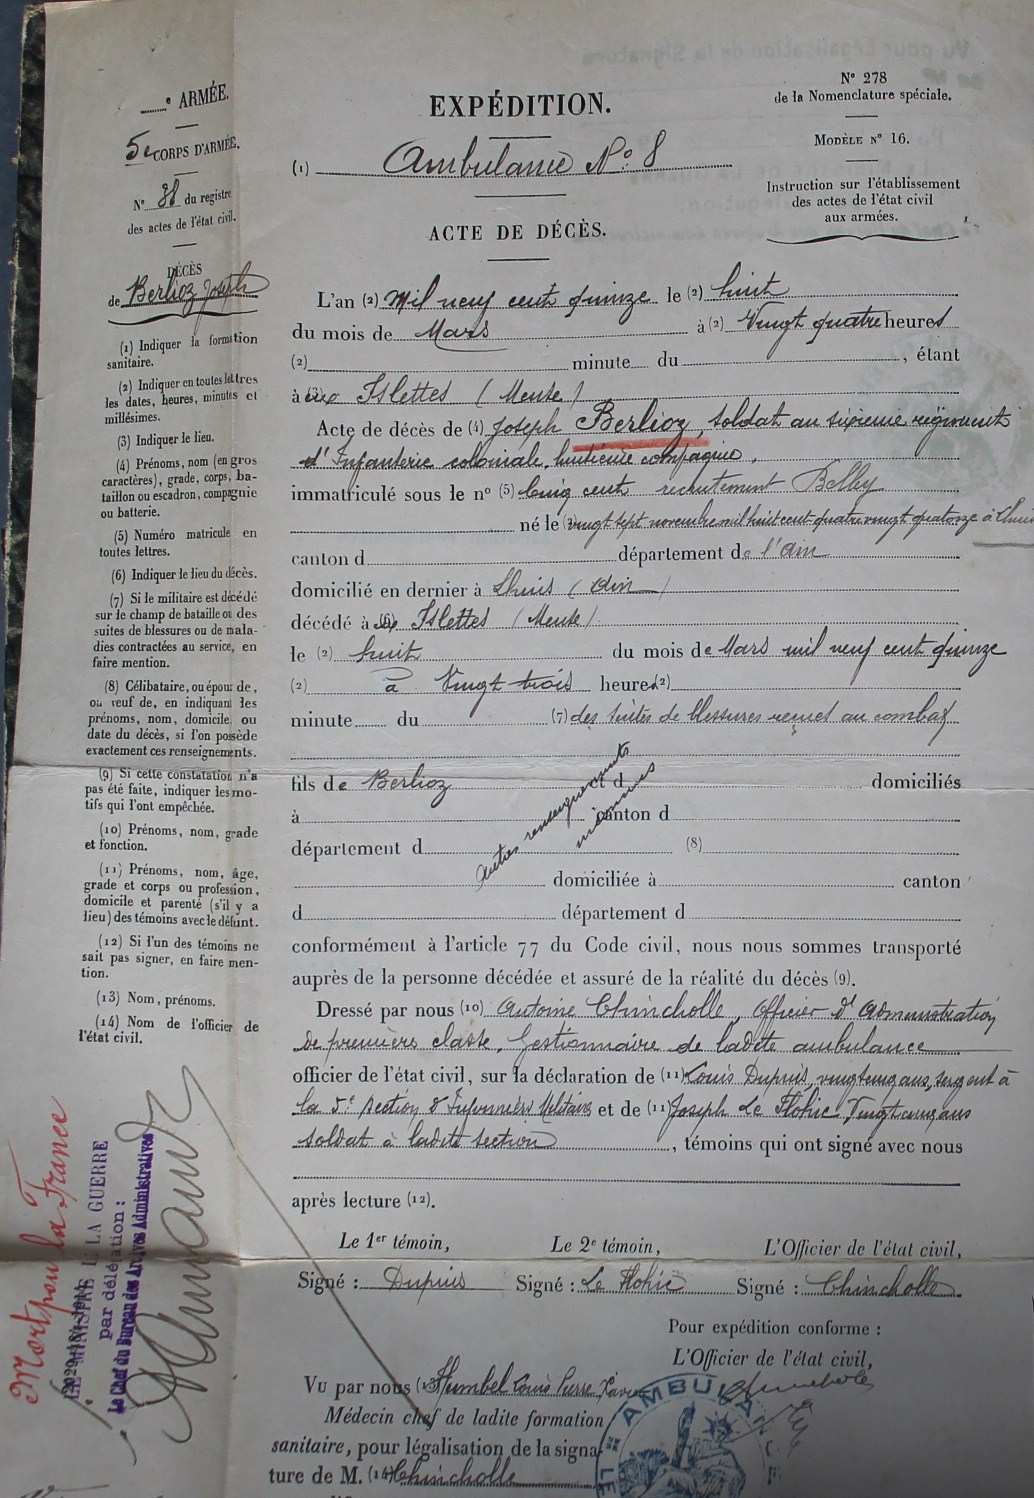 e ARMÉE.
5e CORPS D'ARMÉE.
N° 38 du registre
des actes de l'état civil.
DÉCÈS
de Berlioz Joseph
(1) Indiquer la formation
sanitaire.
(2) Indiquer en toutes lettres
les dates, heures, minutes et
millésimes.
(3) Indiquer le lieu.
(4) Prénoms, nom (en gros
caractères), grade, corps, ba-
taillon ou escadron, compagnie
ou batterie.
(5) Numéro matricule en
toutes lettres.
(6) Indiquer le lieu du décès.
(7) Si le militaire est décédé
sur le champ de bataille ou des
suites de blessures ou de mala-
dies contractées au service, en
faire mention.
(8) Célibataire, ou époux de,
ou veuf de, en indiquant les
prénoms, nom, domicile ou
date du décès, si l'on possède
exactement ces renseignements.
(9) Si cette constatation n'a
pas été faite, indiquer les mo-
tifs qui l'ont empêchée.
(10) Prénoms, nom, grade
et fonction.
(11) Prénoms, nom, âge,
grade et corps ou profession,
domicile et parenté (s'il y a
lieu) des témoins avec le défunt.
(12) Si l'un des témoins ne
sait pas signer, en faire men-
tion.
(13) Nom, prénoms.
(14) Nom de l'officier de
l'état civil.
Mort pour la France
LE MINISTRE DE LA GUERRE
par délégation:
Le Chef du Bureau des Archives Administratives
EXPÉDITION.
N° 278
de la Nomenclature spéciale.
MODÈLE N° 16.
Instruction sur l'établissement
des actes de l'état civil
aux armées.
(1) Ambulance No: 8
ACTE DE DÉCÈS.
L'an (2) Mil neuf cent quinze le (2) huit
du mois de Mars à (2) Vingt quatre heures
(2) minute du , étant
à (3) aux Islettes (Meuse)
Acte de décès de (4) Joseph Berlioz, soldat au sixième régiment
d'Infanterie coloniale, huitième compagnie,
immatriculé sous le n° (5) Cinq cent recrutement Belley
né le (2) vingt sept novembre mil huit cent quatre vingt quatorze à Lhuis
canton d département de l'Ain
domicilié en dernier à Lhuis (Ain)
décédé à (6) aux Islettes (Meuse)
le (2) huit du mois de Mars mil neuf cent quinze
(2) à Vingt trois heures (2)
minute du (7) des suites de blessures reçues au combat
fils de Berlioz et d domiciliés
à canton d
département d (8)
Autres renseignements
inconnus
domiciliée à canton
d département d
conformément à l'article 77 du Code civil, nous nous sommes transporté
auprès de la personne décédée et assuré de la réalité du décès (9).
Dressé par nous (10) Antoine Chincholle, Officier d'Administration
de première classe, Gestionnaire de ladite ambulance
officier de l'état civil, sur la déclaration de (11) Louis Dupuis, vingt cinq ans, sergent à
la 5e section d'Infirmiers Militaires et de (11) Joseph Le Flohic, Vingt cinq ans
soldat à ladite section , témoins qui ont signé avec nous
après lecture (12).
Le 1er témoin, Le 2e témoin, L'Officier de l'état civil,
Signé : Dupuis Signé : Le Flohic Signé : Chincholle
Pour expédition conforme :
L'Officier de l'état civil,
Chincholle
Vu par nous (13) Humbel Louis Pierre Xavier
Médecin chef de ladite formation
sanitaire, pour légalisation de la signa-
ture de M. (14) Chincholle
AMBULA
LE